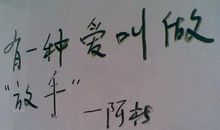 有一种爱叫做
"放手"
—阿